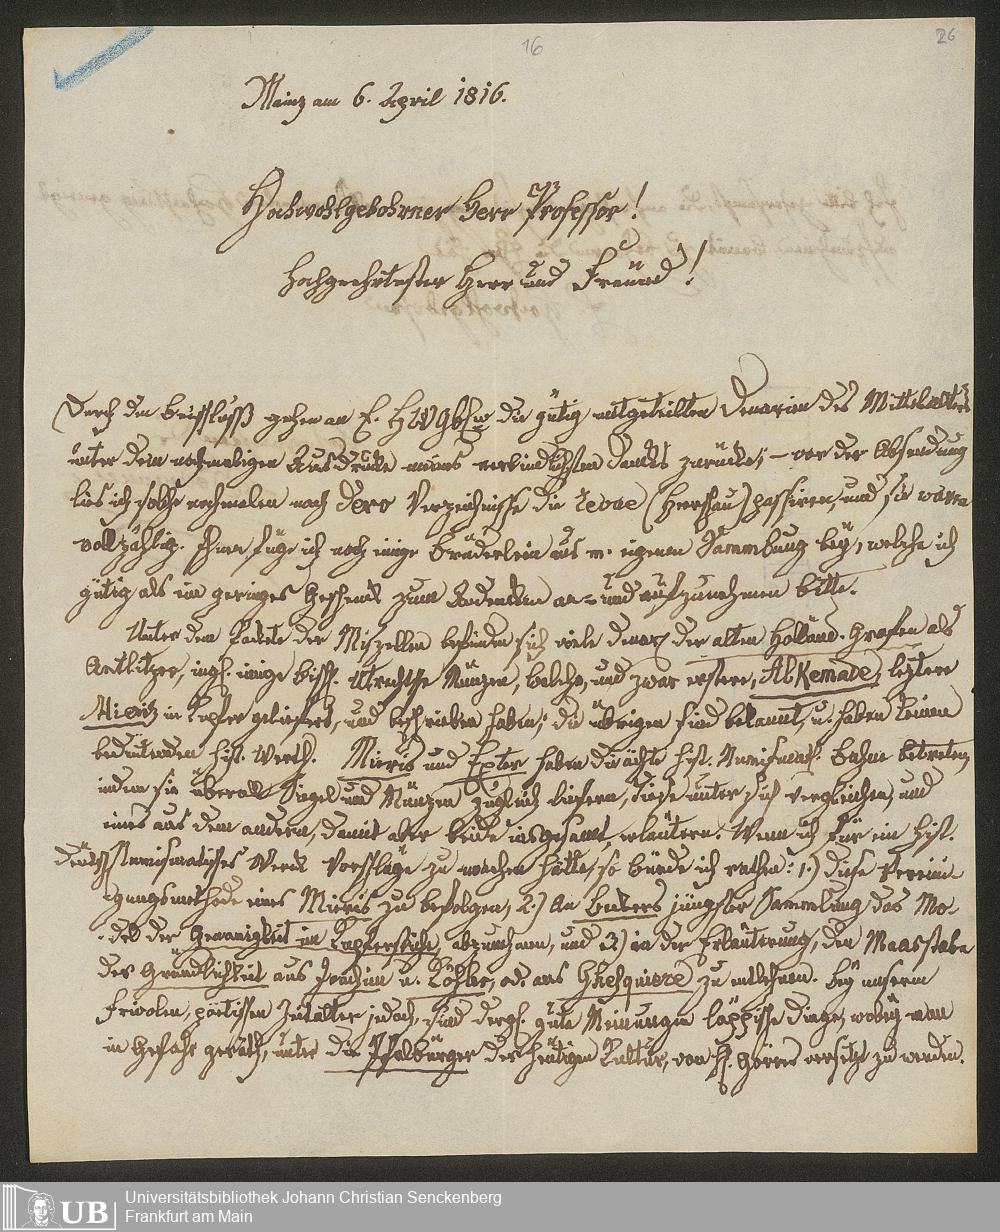 16
26
Mainz am 6. April 1816.
Hochwohlgebohrner Herr Professor!
Hochgeehrtester Herr und Freund!
Durch den Beischluß gehen an E. HWGb die gütig mitgetheilten Denarien des Mittelalters
unter dem nochmaligen Ausdrucke meines verbindlichsten Danks zurücke; – vor der Absendung
lies ich solche nochmalen nach dero Verzeichnisse die revue (Heerschau) passiren, und sie waren
vollzählig. Ihnen füge ich noch einige Bräderlein aus m. eigenen Sammlung bey, welche ich
gütig als ein geringes Geschenk zum Andenken an- und aufzunehmen bitte.
Unter dem Pakete der Miszellen befinden sich viele denar der alten Holländ. Grafen als
Antlitzer, ingl. einige bisch. Utrechtsche Münzen, welche, und zwar erstere, Alkemade, letztere
Mieris in Kupfer geliefert, und beschrieben haben; die übrigen sind bekannt, u. haben keinen
bedeutenden hist. Werth. Mieris und Exter haben die ächte hist. Numismat. Bahne betreten,
indem sie überall Siegel und Münzen zugleich liefern, diese unter sich vergleichen, und
eines aus dem andern, damit aber beide insgesamt, erläutern. Wenn ich für ein hist.
deutsch Numismatisches Werk Vorschläge zu machen hätte, so würde ich rathen: 1.) diese Verein-
igungsmethode eines Mieris zu befolgen, 2.) An Beckers jüngster Sammlung das Mo-
del der Genauigkeit im Kupferstiche, abzunehmen, und 3) in der Erläuterung, den Maasstabe
der Gründlichkeit aus Joachim u. Köhler, od. aus Ghesquiere zu entlehnen. Bey unserm
frivolen, poetischen Zeitalter jedoch, sind dergl. gute Meinungen läppische Dinge, wobey man
in Gefahr geräth, unter die Pfalbürger der heutigen Kultur, von H. Görres versetzt zu werden.
UB
Universitätsbibliothek Johann Christian Senckenberg
Frankfurt am Main